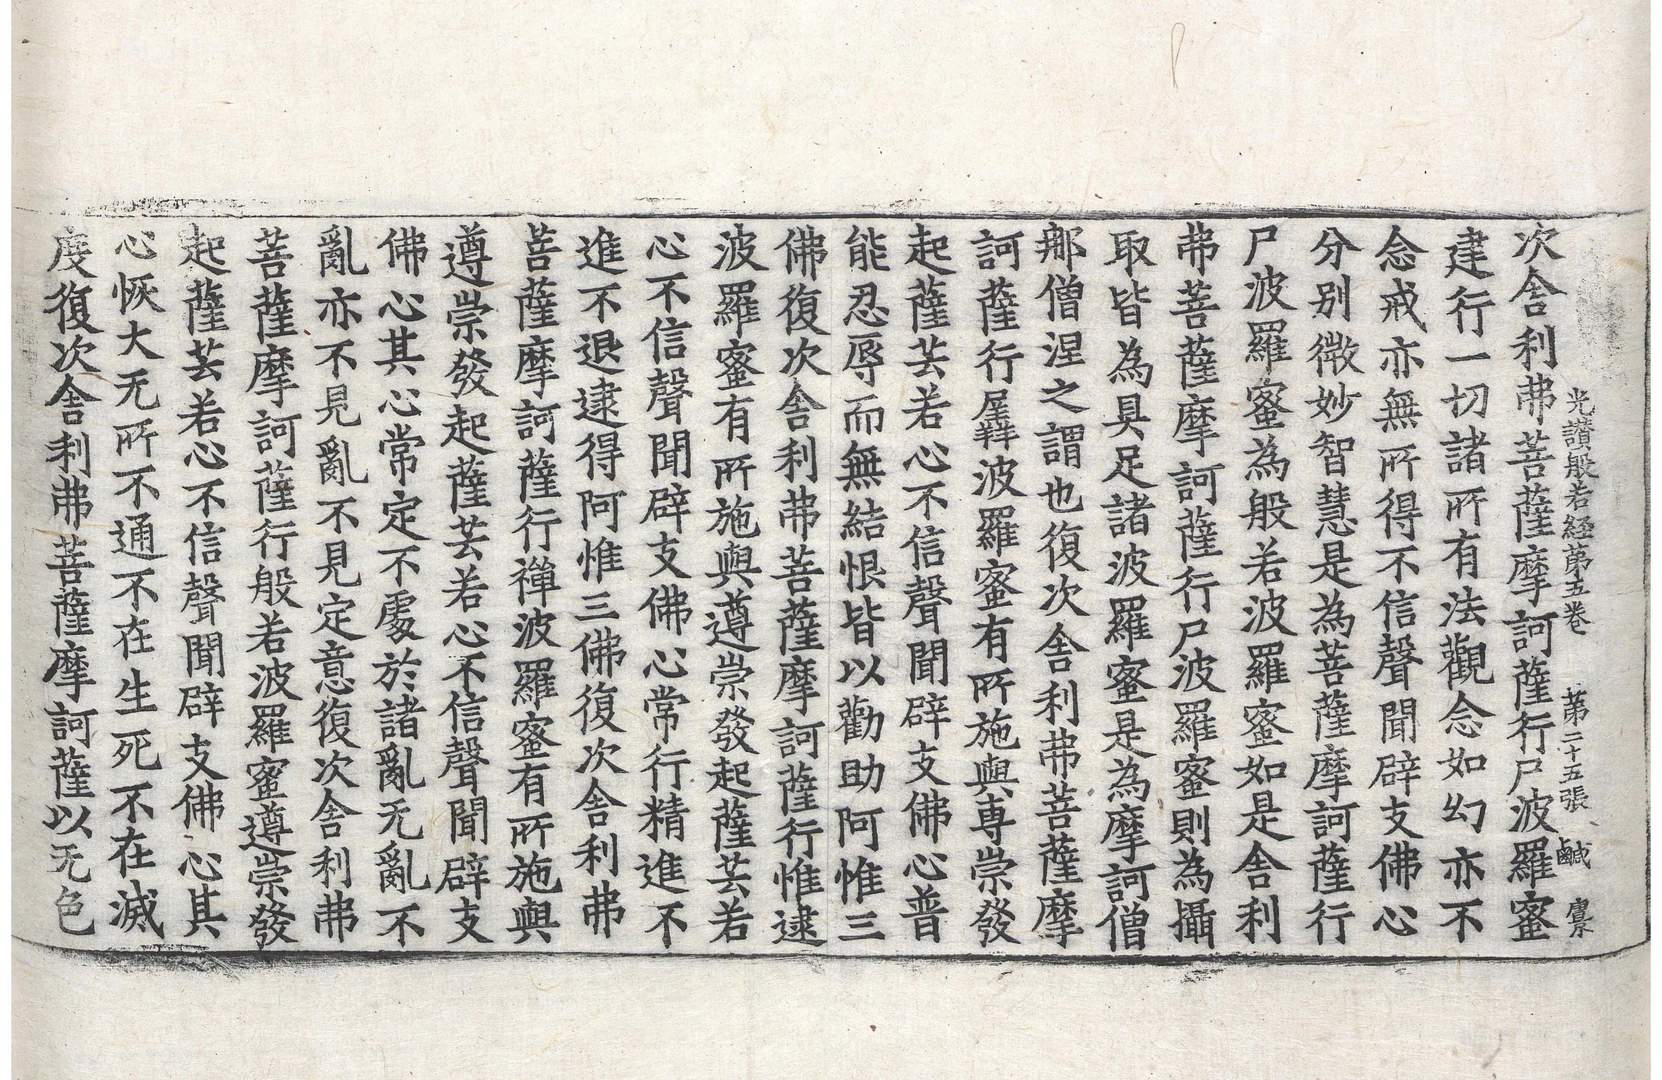 光讃般若經第五卷 第二十五張 鹹
次舍利弗菩薩摩訶薩行尸波羅蜜
建行一切諸所有法觀念如幻亦不
念戒亦無所得不信聲聞辟支佛心
分别微妙智慧是為菩薩摩訶薩行
尸波羅蜜為般若波羅蜜如是舍利
弗菩薩摩訶薩行尸波羅蜜則為攝
取皆為具足諸波羅蜜是為摩訶僧
那僧涅之謂也復次舍利弗菩薩摩
訶薩行羼波羅蜜有所施與専崇發
起薩芸若心不信聲聞辟支佛心普
能忍辱而無結恨皆以勸助阿惟三
佛復次舍利弗菩薩摩訶薩行惟逮
波羅蜜有所施與遵崇發起薩芸若
心不信聲聞辟支佛心常行精進不
進不退逮得阿惟三佛復次舍利弗
菩薩摩訶薩行禪波羅蜜有所施與
遵崇發起薩芸若心不信聲聞辟支
佛心其心常定不處於諸亂无亂不
亂亦不見亂不見定意復次舍利弗
菩薩摩訶薩行般若波羅蜜遵崇發
起薩芸若心不信聲聞辟支佛心其
心恢大无所不通不在生死不在滅
度復次舍利弗菩薩摩訶薩以无色